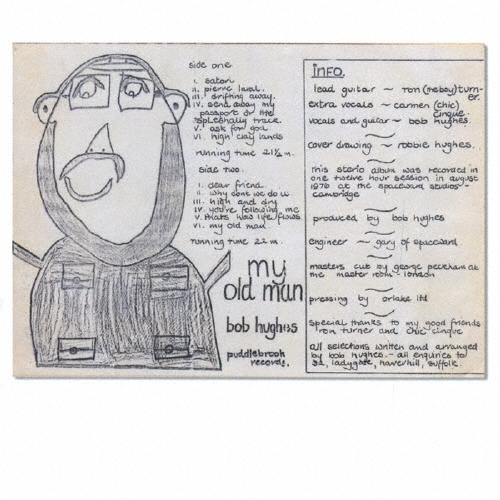 side one
i. satori
ii. pierre laval.
iii. drifting away.
iv. send away my
passport or the
v. ask for god
vi. high clay lands
running time 21½ m.
side two.
i. dear friend.
ii. why dont we do it
iii. high and dry
iv. you're following me
v. thats how life flows
vi. my old man
running time 22 m.
my
old man
bob hughes
puddlebrook
records.
info.
lead guitar ~ ron (neboy) turn-
er.
extra vocals ~ carmen (chic)
cinque.
vocals and guitar ~ bob hughes.
cover drawing ~ robbie hughes.
this sterio album was recorded in
one twelve hour session in august
1976 at the spaceward studios -
cambridge
produced by bob hughes
engineer ~ gary of spaceward
masters cut by george peckham at
the master room - london
pressing by orlake ltd
special thanks to my good friends
ron turner and chic cinque
all selections written and arranged
by bob hughes. - all enquiries to
ladygate, haverhill, suffolk.